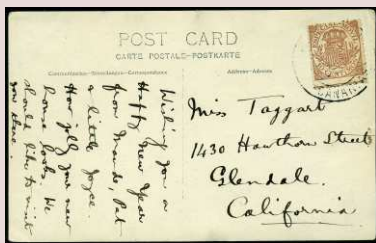 POST CARD
CARTE POSTALE-POSTKARTE
Communication
Address-Adresse
Wishing you a
Happy New Year
from Maude, Pat
& little Joyce.
How jolly your new
home looks. We
should like to visit
you there.
Miss Taggart
1430 Hawthorn Street
Glendale.
California